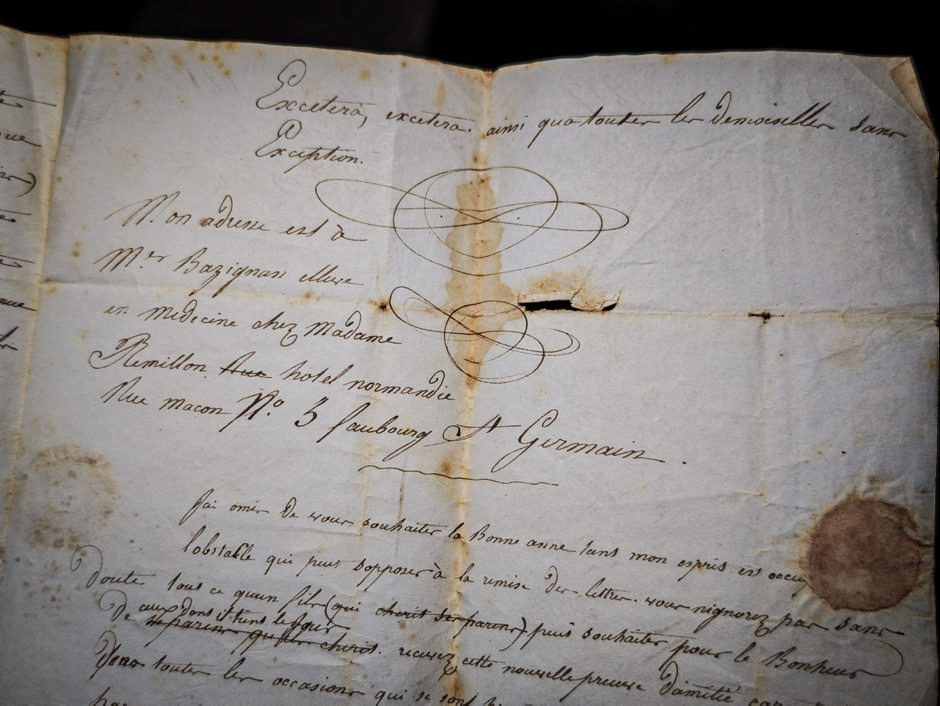 Excetera, excetera. ainsi qua toutes les demoiselles sans
Exception.
Mon adresse est à
Mr Bazignan elleve
en medecine chez Madame
Remillon rue hotel normandie
Rue macon No. 3 faubourg St Germain.
J'ai omis de vous souhaiter la Bonne anne tans mon espris est occu
l'obstable qui peus s'opposer à la remise des lettres. vous n'ignorez pas sans
Doute tous ce qu'un fils (qui cherit ses parens) puis souhaiter pour le Bonheur
De aux dons il tiens le jour
ses parens qu'il cheris. recevez cette nouvelle preuve D'amitié
toutes les occasions qui se